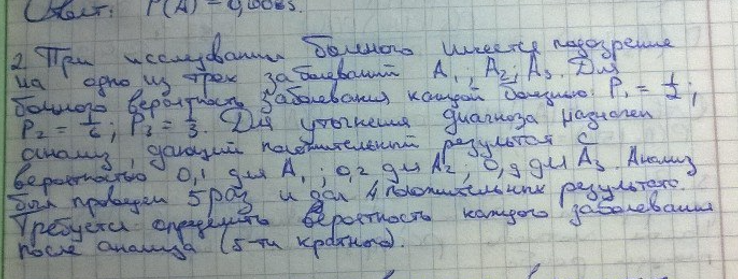 Ответ: P(A) = 0,0085.
2. При исследовании больного имеется подозрение
на одно из трех заболеваний A₁; A₂; A₃. Для
больного вероятность заболевания каждой болезнью: P₁ = 1/2;
P₂ = 1/6; P₃ = 1/3. Для уточнения диагноза назначен
анализ, дающий положительный результат с
вероятностью 0,1 для A₁; 0,2 для A₂; 0,9 для A₃. Анализ
был проведен 5 раз и дал 4 положительных результата.
Требуется определить вероятность каждого заболевания
после анализа (5-ти кратного).